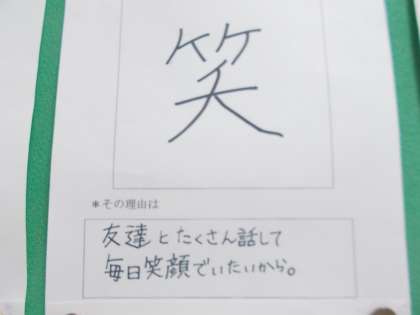 笑
*その理由は
友達とたくさん話して
毎日笑顔でいたいから。